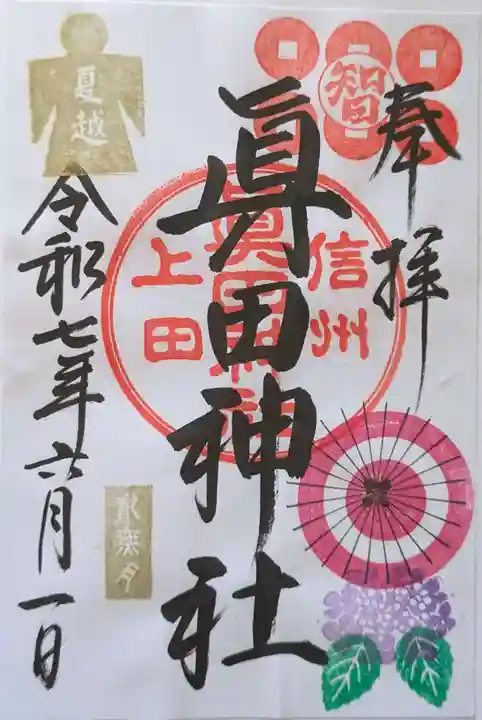 奉拝
智
信州
眞田神社
上田
眞田神社
夏越
令和七年六月一日
水無月